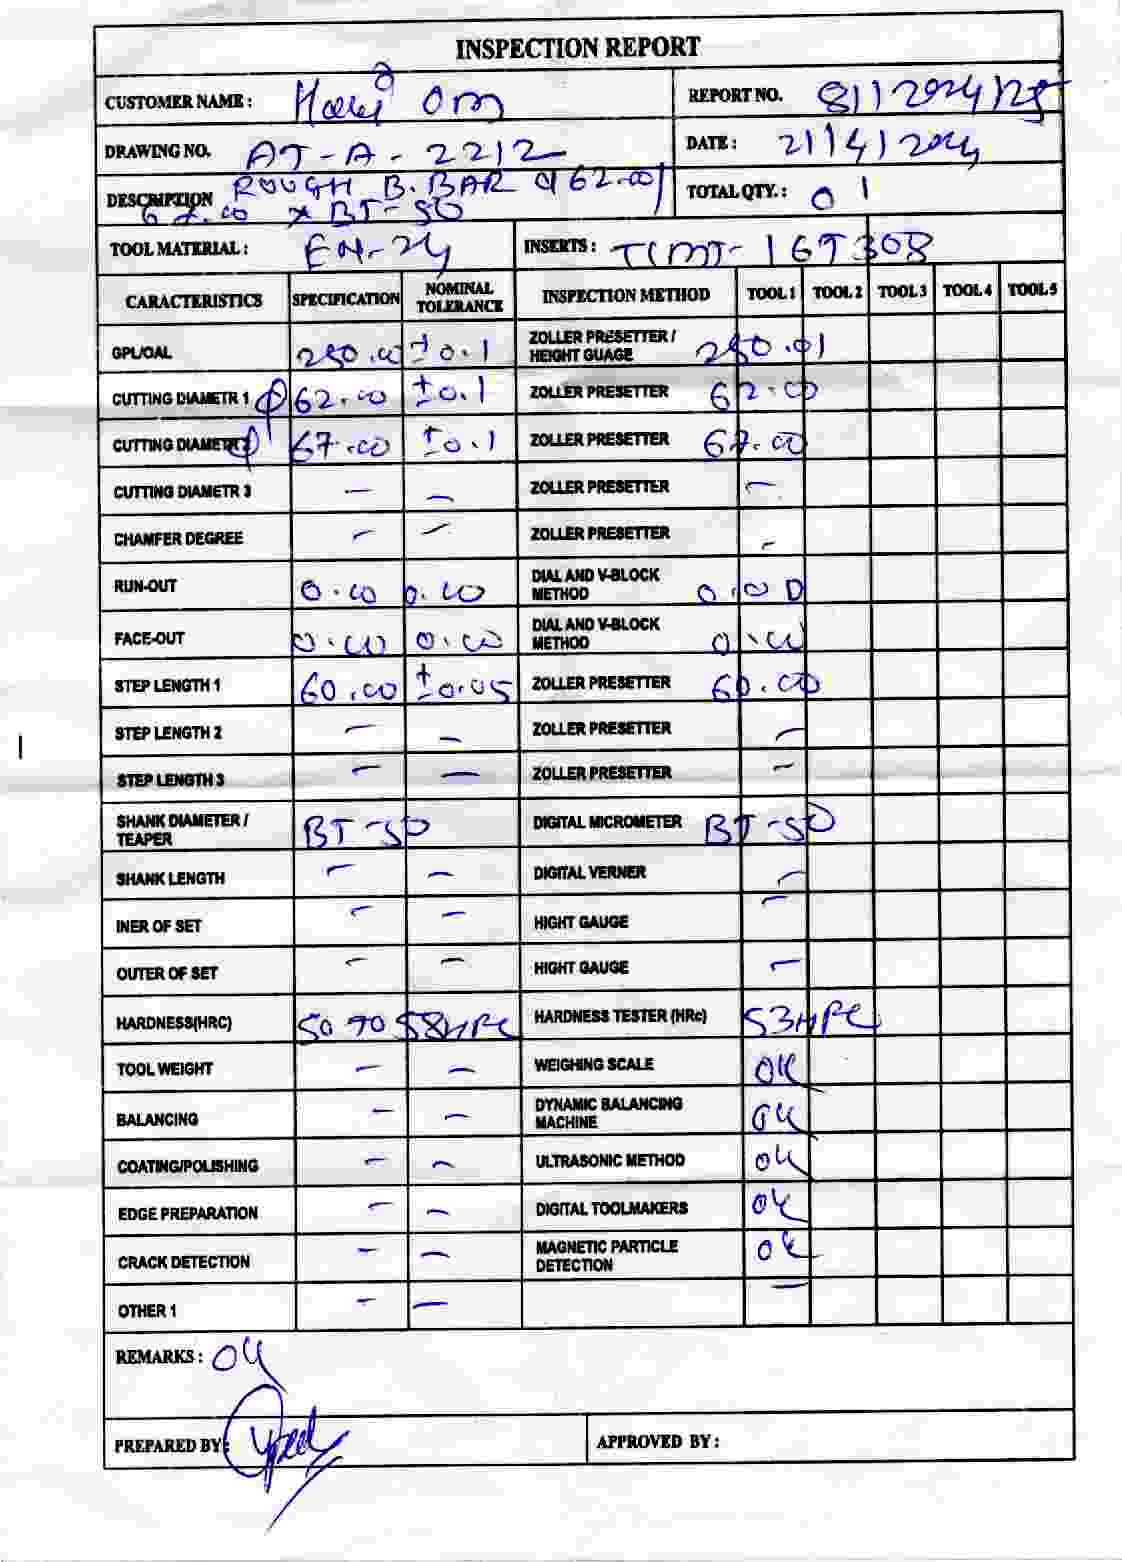 INSPECTION REPORT
CUSTOMER NAME : Hari Om
REPORT NO. 81/2024/25
DRAWING NO. AT-A-2212
DATE : 21/4/2024
DESCRIPTION ROUGH B.BAR φ62.00/
67.00 x BT-50
TOTAL QTY. : 01
TOOL MATERIAL : EN-24
INSERTS : TCMT-16T308
CARACTERISTICS SPECIFICATION NOMINAL TOLERANCE INSPECTION METHOD TOOL 1 TOOL 2 TOOL 3 TOOL 4 TOOL 5
GPL/OAL 250.00 ±0.1 ZOLLER PRESETTER / HEIGHT GUAGE 250.01
CUTTING DIAMETR 1 φ 62.00 ±0.1 ZOLLER PRESETTER 62.00
CUTTING DIAMETR 2 φ 67.00 ±0.1 ZOLLER PRESETTER 67.00
CUTTING DIAMETR 3 - - ZOLLER PRESETTER -
CHAMFER DEGREE - - ZOLLER PRESETTER -
RUN-OUT 0.00 0.00 DIAL AND V-BLOCK METHOD 0.00
FACE-OUT 0.00 0.00 DIAL AND V-BLOCK METHOD 0.00
STEP LENGTH 1 60.00 ±0.05 ZOLLER PRESETTER 60.00
STEP LENGTH 2 - - ZOLLER PRESETTER -
STEP LENGTH 3 - - ZOLLER PRESETTER -
SHANK DIAMETER / TEAPER BT-50 DIGITAL MICROMETER BT-50
SHANK LENGTH - - DIGITAL VERNER -
INER OF SET - - HIGHT GAUGE -
OUTER OF SET - - HIGHT GAUGE -
HARDNESS(HRC) 50 TO 58HRC HARDNESS TESTER (HRc) 53HRC
TOOL WEIGHT - - WEIGHING SCALE OK
BALANCING - - DYNAMIC BALANCING MACHINE OK
COATING/POLISHING - - ULTRASONIC METHOD OK
EDGE PREPARATION - - DIGITAL TOOLMAKERS OK
CRACK DETECTION - - MAGNETIC PARTICLE DETECTION OK
OTHER 1 - - -
REMARKS : OK
PREPARED BY :
APPROVED BY :